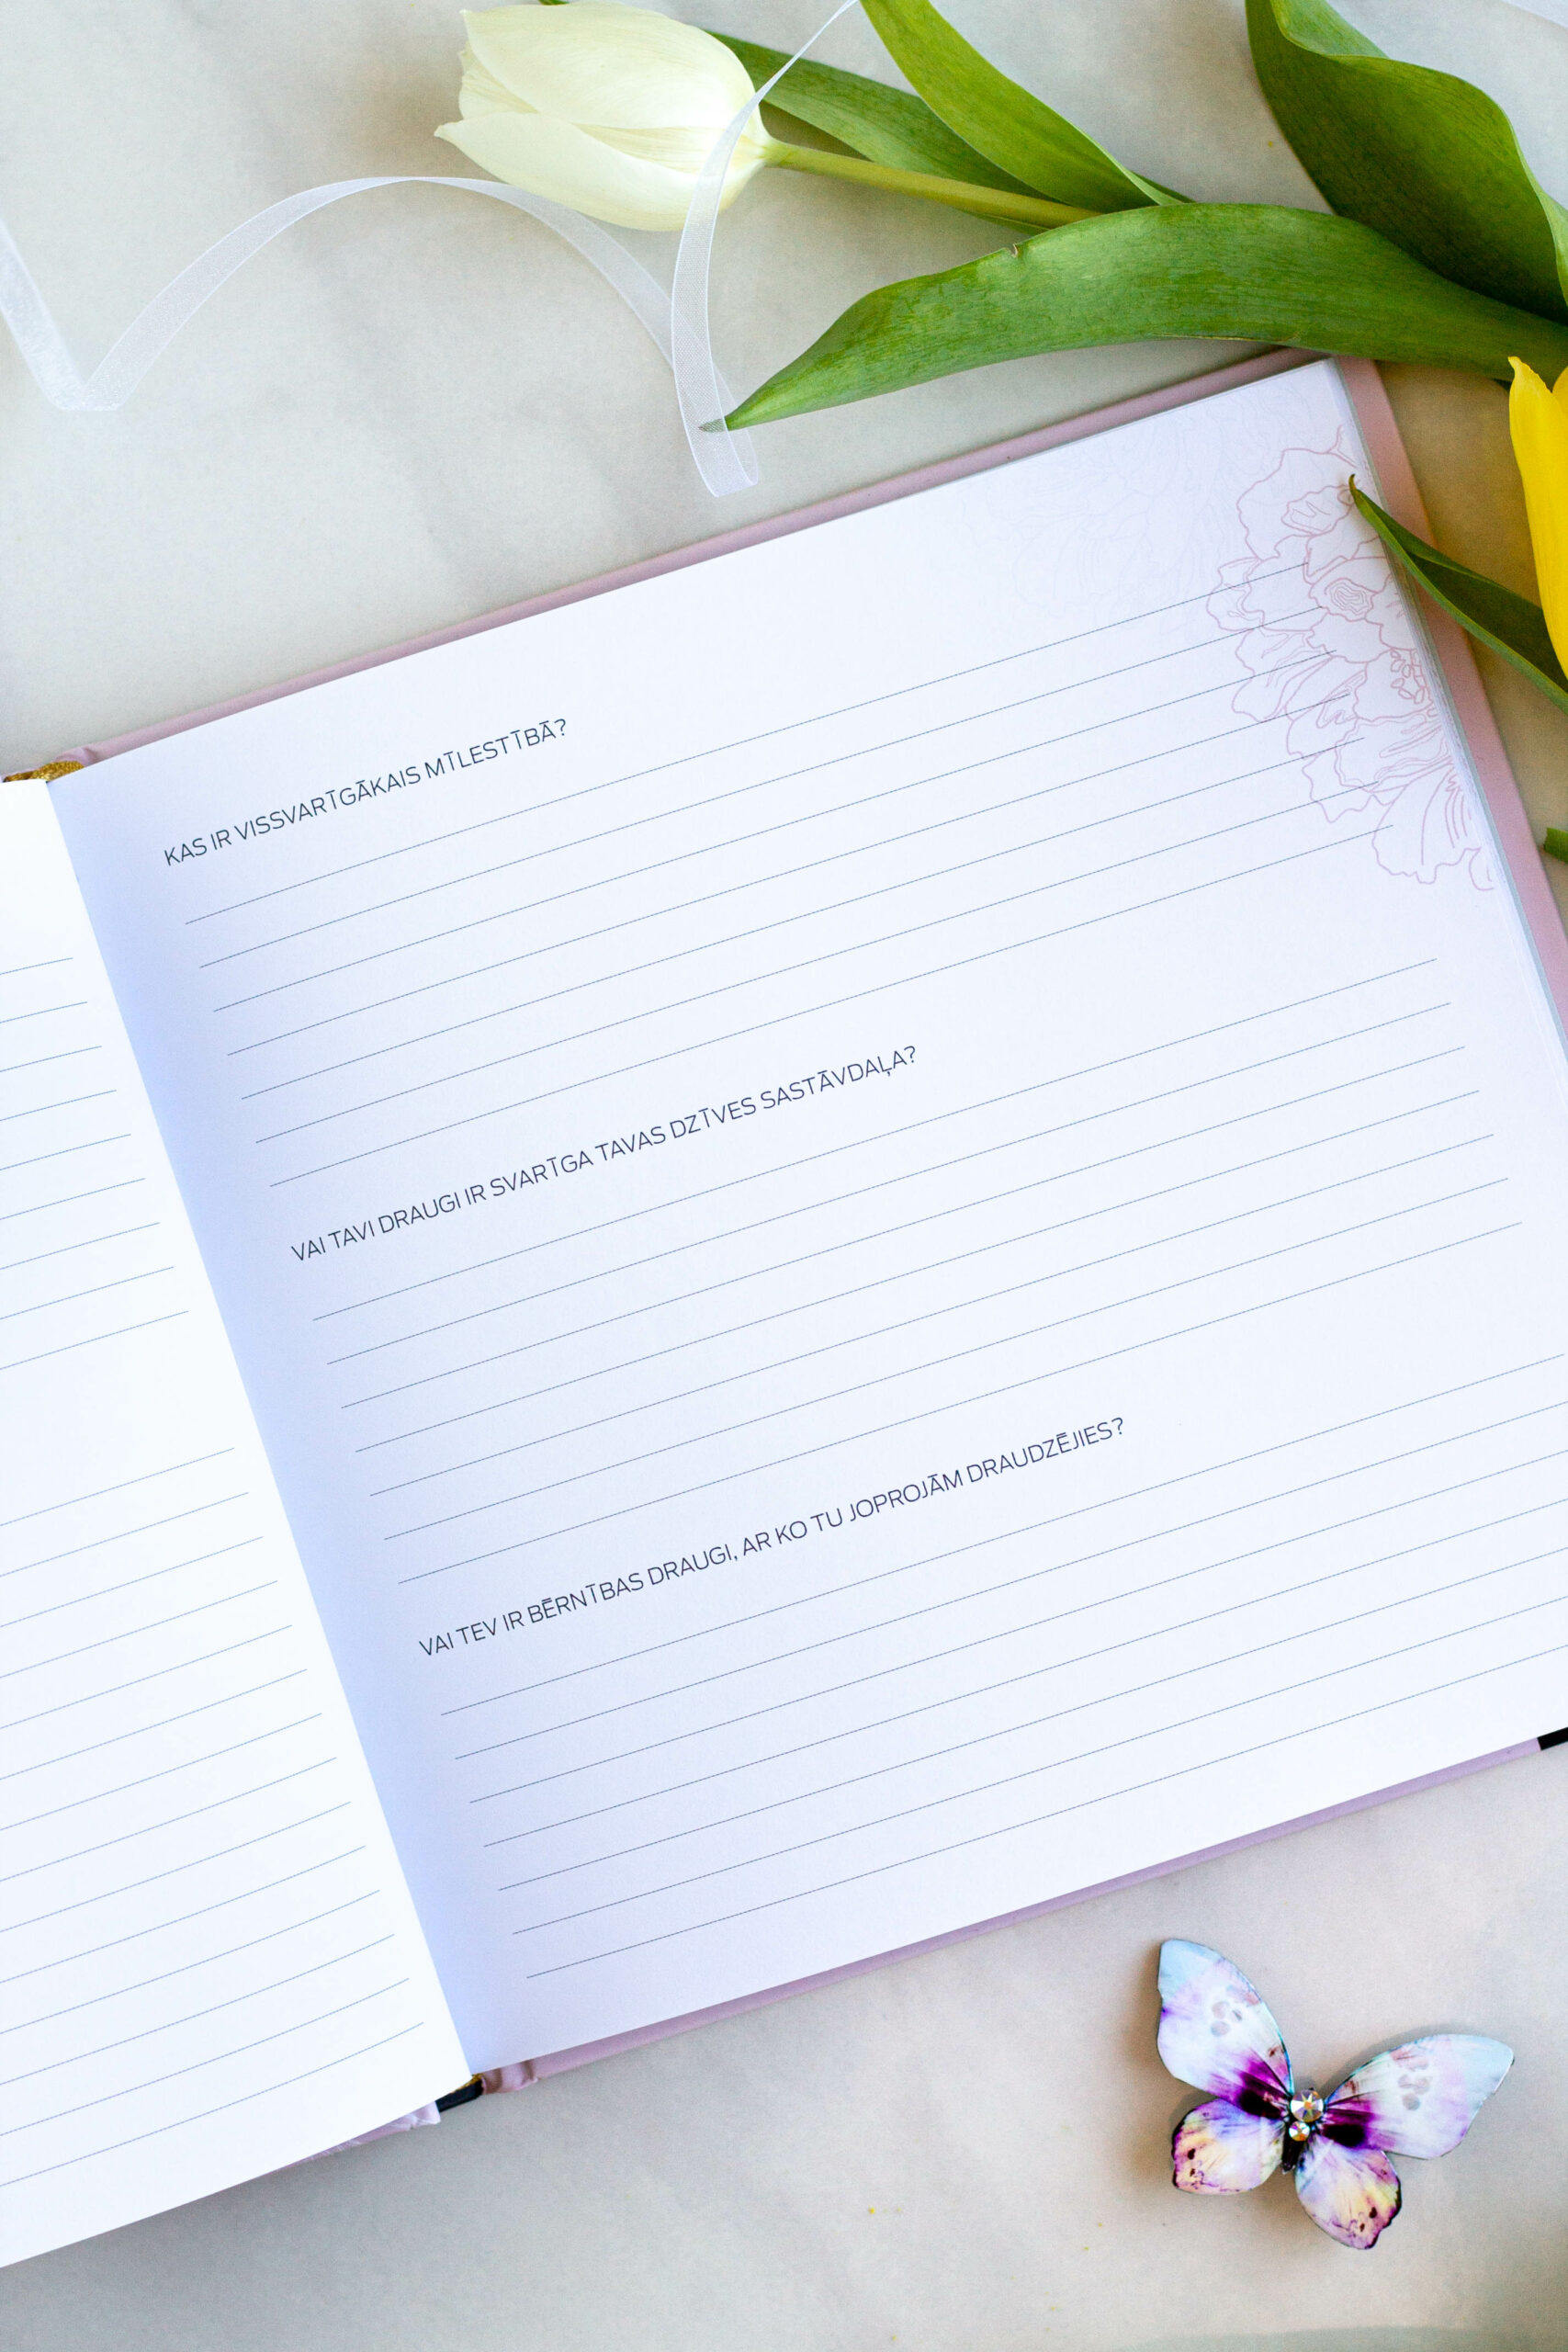 KAS IR VISSVARĪGĀKAIS MĪLESTĪBĀ?
VAI TAVI DRAUGI IR SVARĪGA TAVAS DZĪVES SASTĀVDAĻA?
VAI TEV IR BĒRNĪBAS DRAUGI, AR KO TU JOPROJĀM DRAUDZĒJIES?